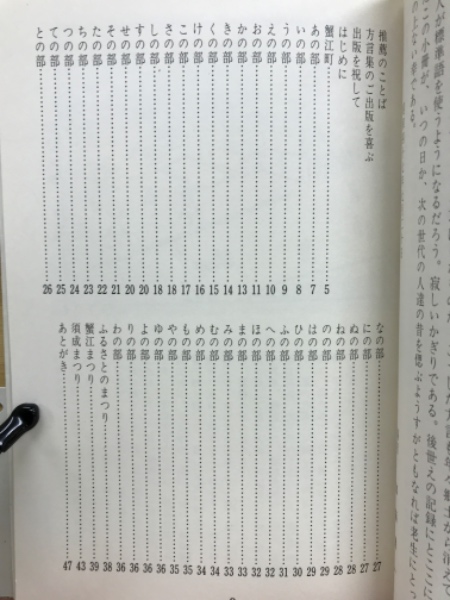 人が標準語を使うようになるだろう。寂しいかぎりである。後世えの記録にとここに
たこの小冊が、いつの日か、次の世代の人達の昔を偲ぶようすがともなれば老生にとっ
のとない幸である。
推薦のことば
方言集のご出版を喜ぶ
出版を祝して
はじめに
蟹江町……5
あの部……7
いの部……8
うの部……9
えの部……10
おの部……11
かの部……13
きの部……14
くの部……15
けの部……16
この部……17
さの部……18
しの部……18
すの部……20
せの部……20
その部……21
たの部……22
ちの部……23
つの部……24
ての部……25
との部……26
なの部……27
にの部……27
ぬの部……28
ねの部……28
のの部……29
はの部……29
ひの部……30
ふの部……31
への部……32
ほの部……32
まの部……33
みの部……33
むの部……34
めの部……34
もの部……35
やの部……35
ゆの部……36
よの部……36
りの部……36
わの部……36
ふるさとのまつり……38
蟹江まつり……39
須成まつり……43
あとがき……47